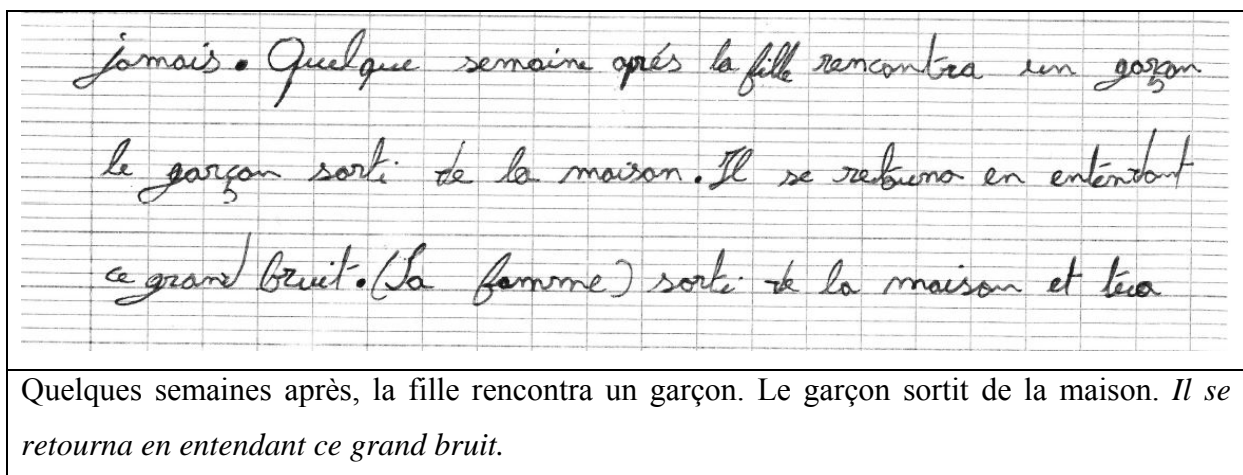 jamais. Quelque semaine aprés la fille rencontra un garçon
le garçon sorti de la maison. Il se retourna en entendant
ce grand bruit. (Sa famme) sorti de la maison et tira
Quelques semaines après, la fille rencontra un garçon. Le garçon sortit de la maison. Il se
retourna en entendant ce grand bruit.